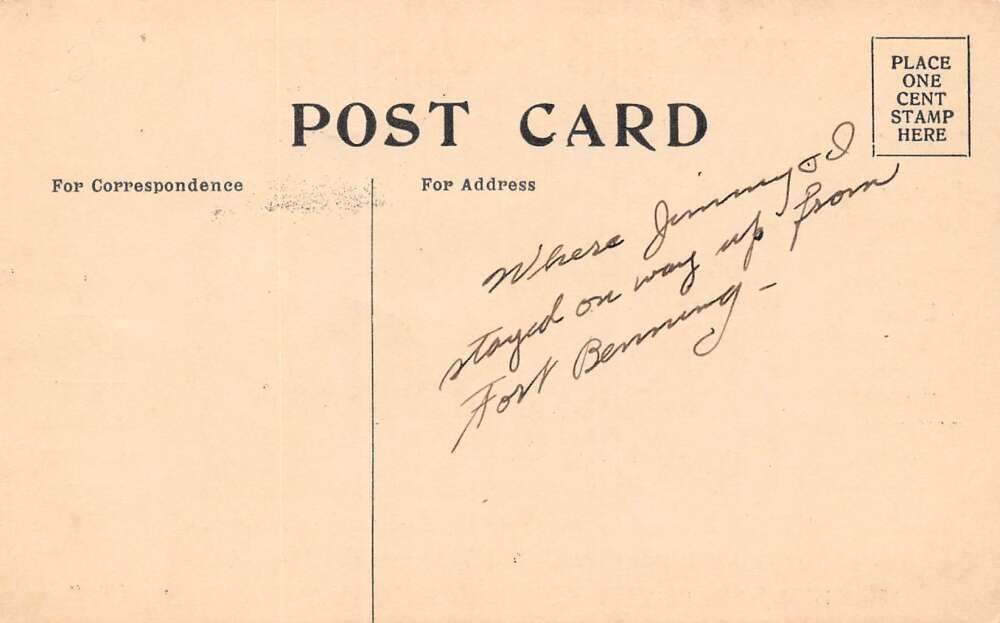 POST CARD
PLACE
ONE
CENT
STAMP
HERE
For Correspondence
For Address
Where Jimmy & I
stayed on way up from
Fort Benning –